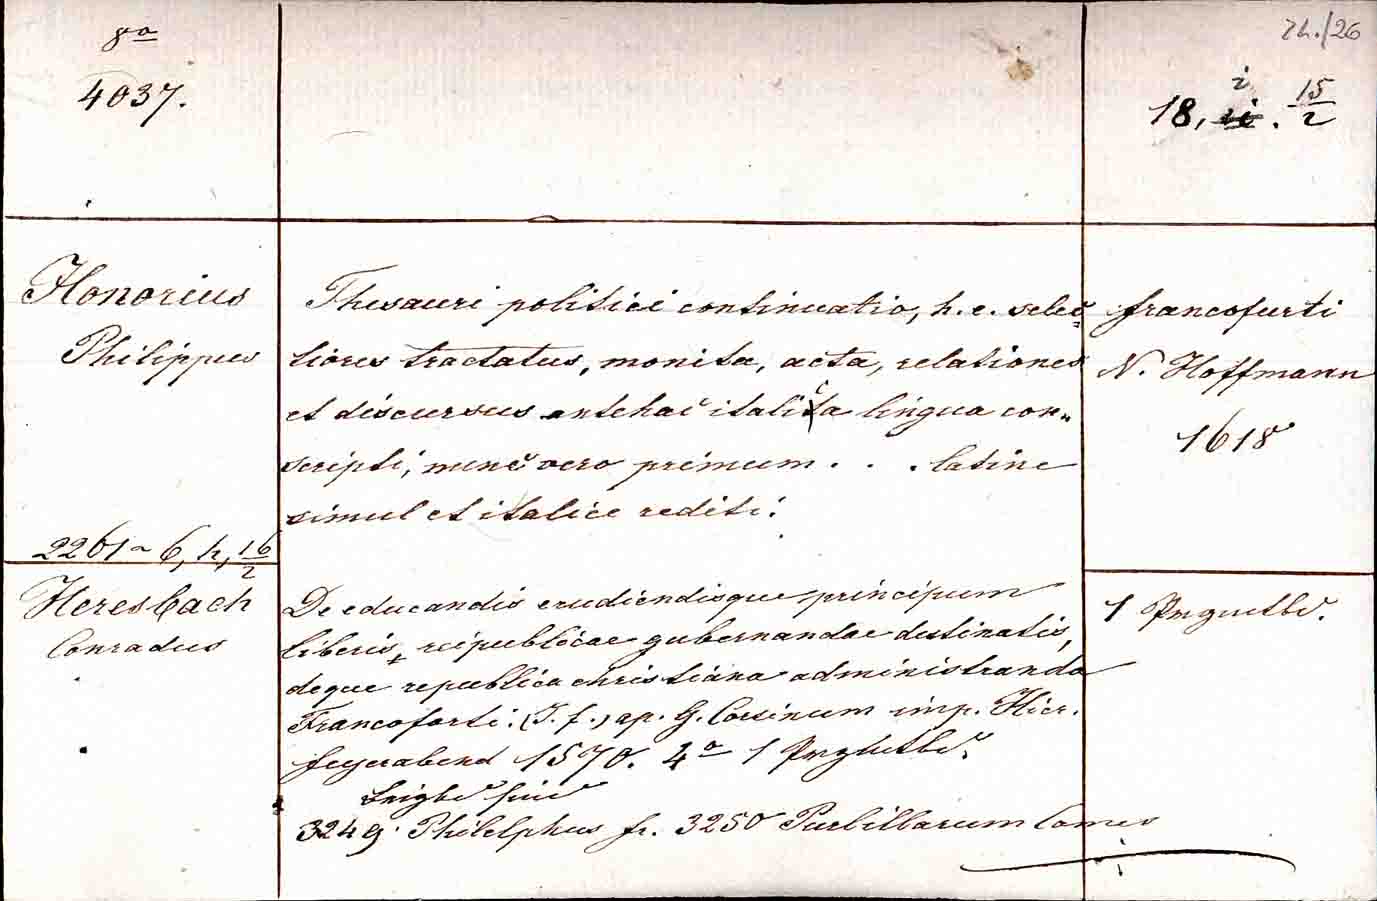 8o
4037.
Zh./26
i
18, . 15/2
Honorius
Philippus
Thesauri politici continuatio, h. e. selec=
tiores tractatus, monita, acta, relationes
et discursus antehac italica lingua con„
scripti, nunc vero primum . . . latine
simul et italice rediti.
Francofurti
N. Hoffmann
1618
2261 ~ 6, h, 16/2
Heresbach
Conradus
De educandis erudiendisque principum
liberis, reipublicae gubernandae destinatis,
deque republica christiana administranda
Francoforti. (I. f.) ap. G. Corvinum imp. Hier.
feyerabend 1570. 4o 1 Prgmtbd.
3249. Philelphus fr. 3250 Purlillarum Comes
1 Prgmtbd.